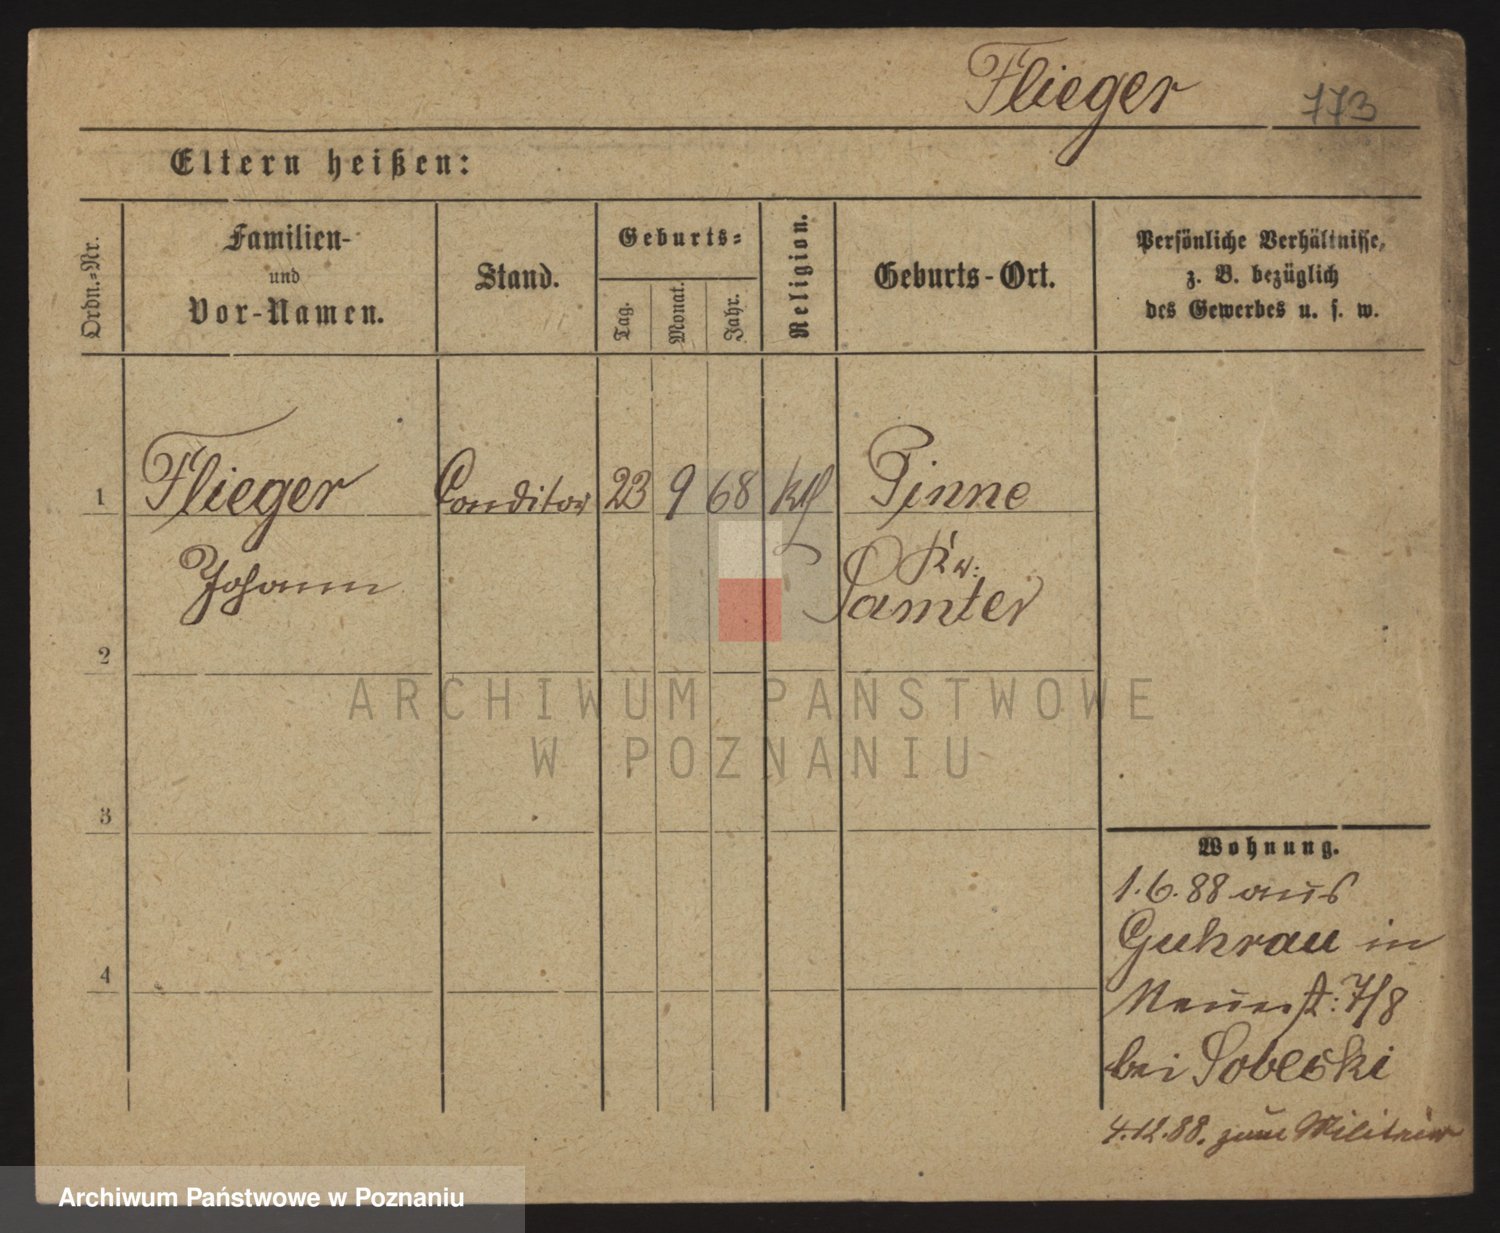 Flieger 773
Eltern heißen:
Ordn.-Nr.
Familien-
und
Vor-Namen.
Stand.
Geburts-
Tag.
Monat.
Jahr.
Religion.
Geburts-Ort.
Persönliche Verhältnisse,
z. B. bezüglich
des Gewerbes u. s. w.
1 Flieger Conditor 23 9 68 kth Pinne
Johann Kr:
Samter
2
ARCHIWUM PAŃSTWOWE
W POZNANIU
3
Wohnung.
1.6.88 aus
Guhrau in
4
Neuest: 7/8
bei Sobeski
4.12.88. zum Militair
Archiwum Państwowe w Poznaniu